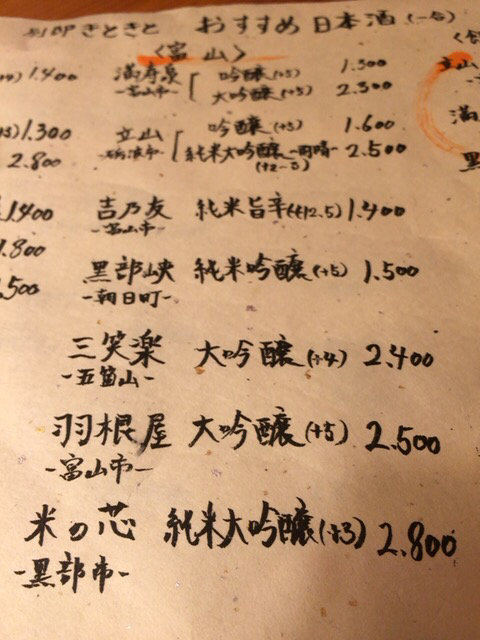 きときと おすすめ 日本酒(一合)
<富山>
1.400 満寿泉 吟醸(+5) 1.500
-富山市- 大吟醸(+5) 2.300
1.300 立山 吟醸(+5) 1.600
2.800 -砺波市- 純米大吟醸-雨晴- 2.500
1.400 吉乃友 純米旨辛(+12.5) 1.400
-富山市-
1.800
黒部峡 純米吟醸(+5) 1.500
500 -朝日町-
三笑楽 大吟醸(+4) 2.400
-五箇山-
羽根屋 大吟醸(+5) 2.500
-富山市-
米の芯 純米大吟醸(+3) 2.800
-黒部市-
立山
満
黒